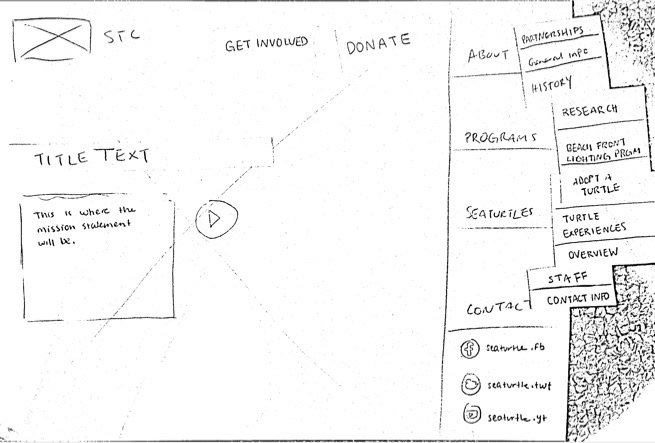 STC
GET INVOLVED
DONATE
TITLE TEXT
This is where the
mission statement
will be.
ABOUT
PARTNERSHIPS
General info
HISTORY
PROGRAMS
RESEARCH
BEACH FRONT
LIGHTING PRGM
ADOPT A
TURTLE
SEATURTLES
TURTLE
EXPERIENCES
OVERVIEW
CONTACT
STAFF
CONTACT INFO
seaturtle.fb
seaturtle.twt
seaturtle.yt